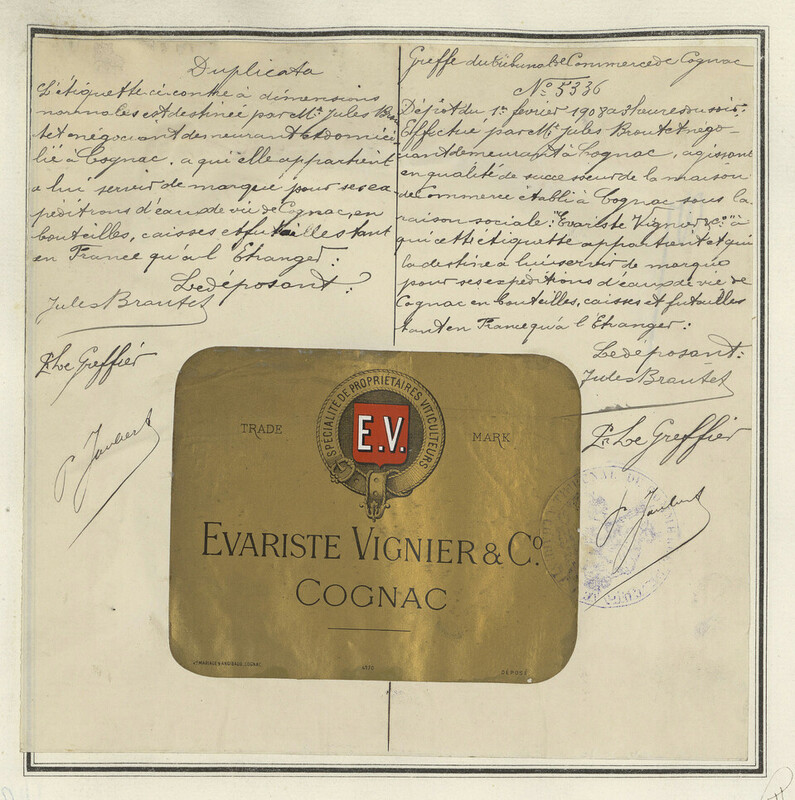 Duplicata
L'étiquette ci-contre à dimensions
normales est destinée par Mr. Jules Brau
tet négociant demeurant et domici
lié à Cognac, a qui elle appartient
a lui servir de marque pour ses ex
péditions d'eaux de vie de Cognac, en
bouteilles, caisses et futailles tant
en France qu'à l'Etranger:
Le déposant:
Jules Brautet
Pr. Le Greffier
P. Jaubert
Greffe du Tribunal de Commerce de Cognac
No. 5336
Dépôt du 1er février 1908 a 3 heures du soir:
Effectué par Mr. Jules Brautet négo-
ciant demeurant à Cognac, agissant
en qualité de successeur de la maison
de Commerce établi à Cognac sous la
raison sociale: "Evariste Vignier & Co." à
qui cette étiquette appartient et qui
la destine a lui servir de marque
pour ses expéditions d'eaux de vie de
Cognac en bouteilles, caisses et futailles
tant en France qu'à l'Etranger:
Le déposant:
Jules Brautet
Pr. Le Greffier
P. Jaubert
SPÉCIALITÉ DE PROPRIÉTAIRES VITICULTEURS
TRADE
E.V.
MARK
EVARISTE VIGNIER & Co.
COGNAC
4770
DÉPOSÉ